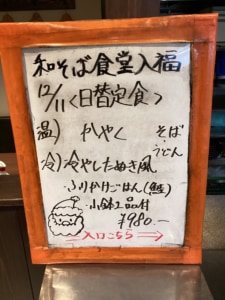 和そば食堂入福
12/11<日替定食>
温) かやく そば
冷) 冷やしたぬき風 うどん
・ふりかけごはん(鮭)
・小鉢1品付
¥980-
入口こちら→